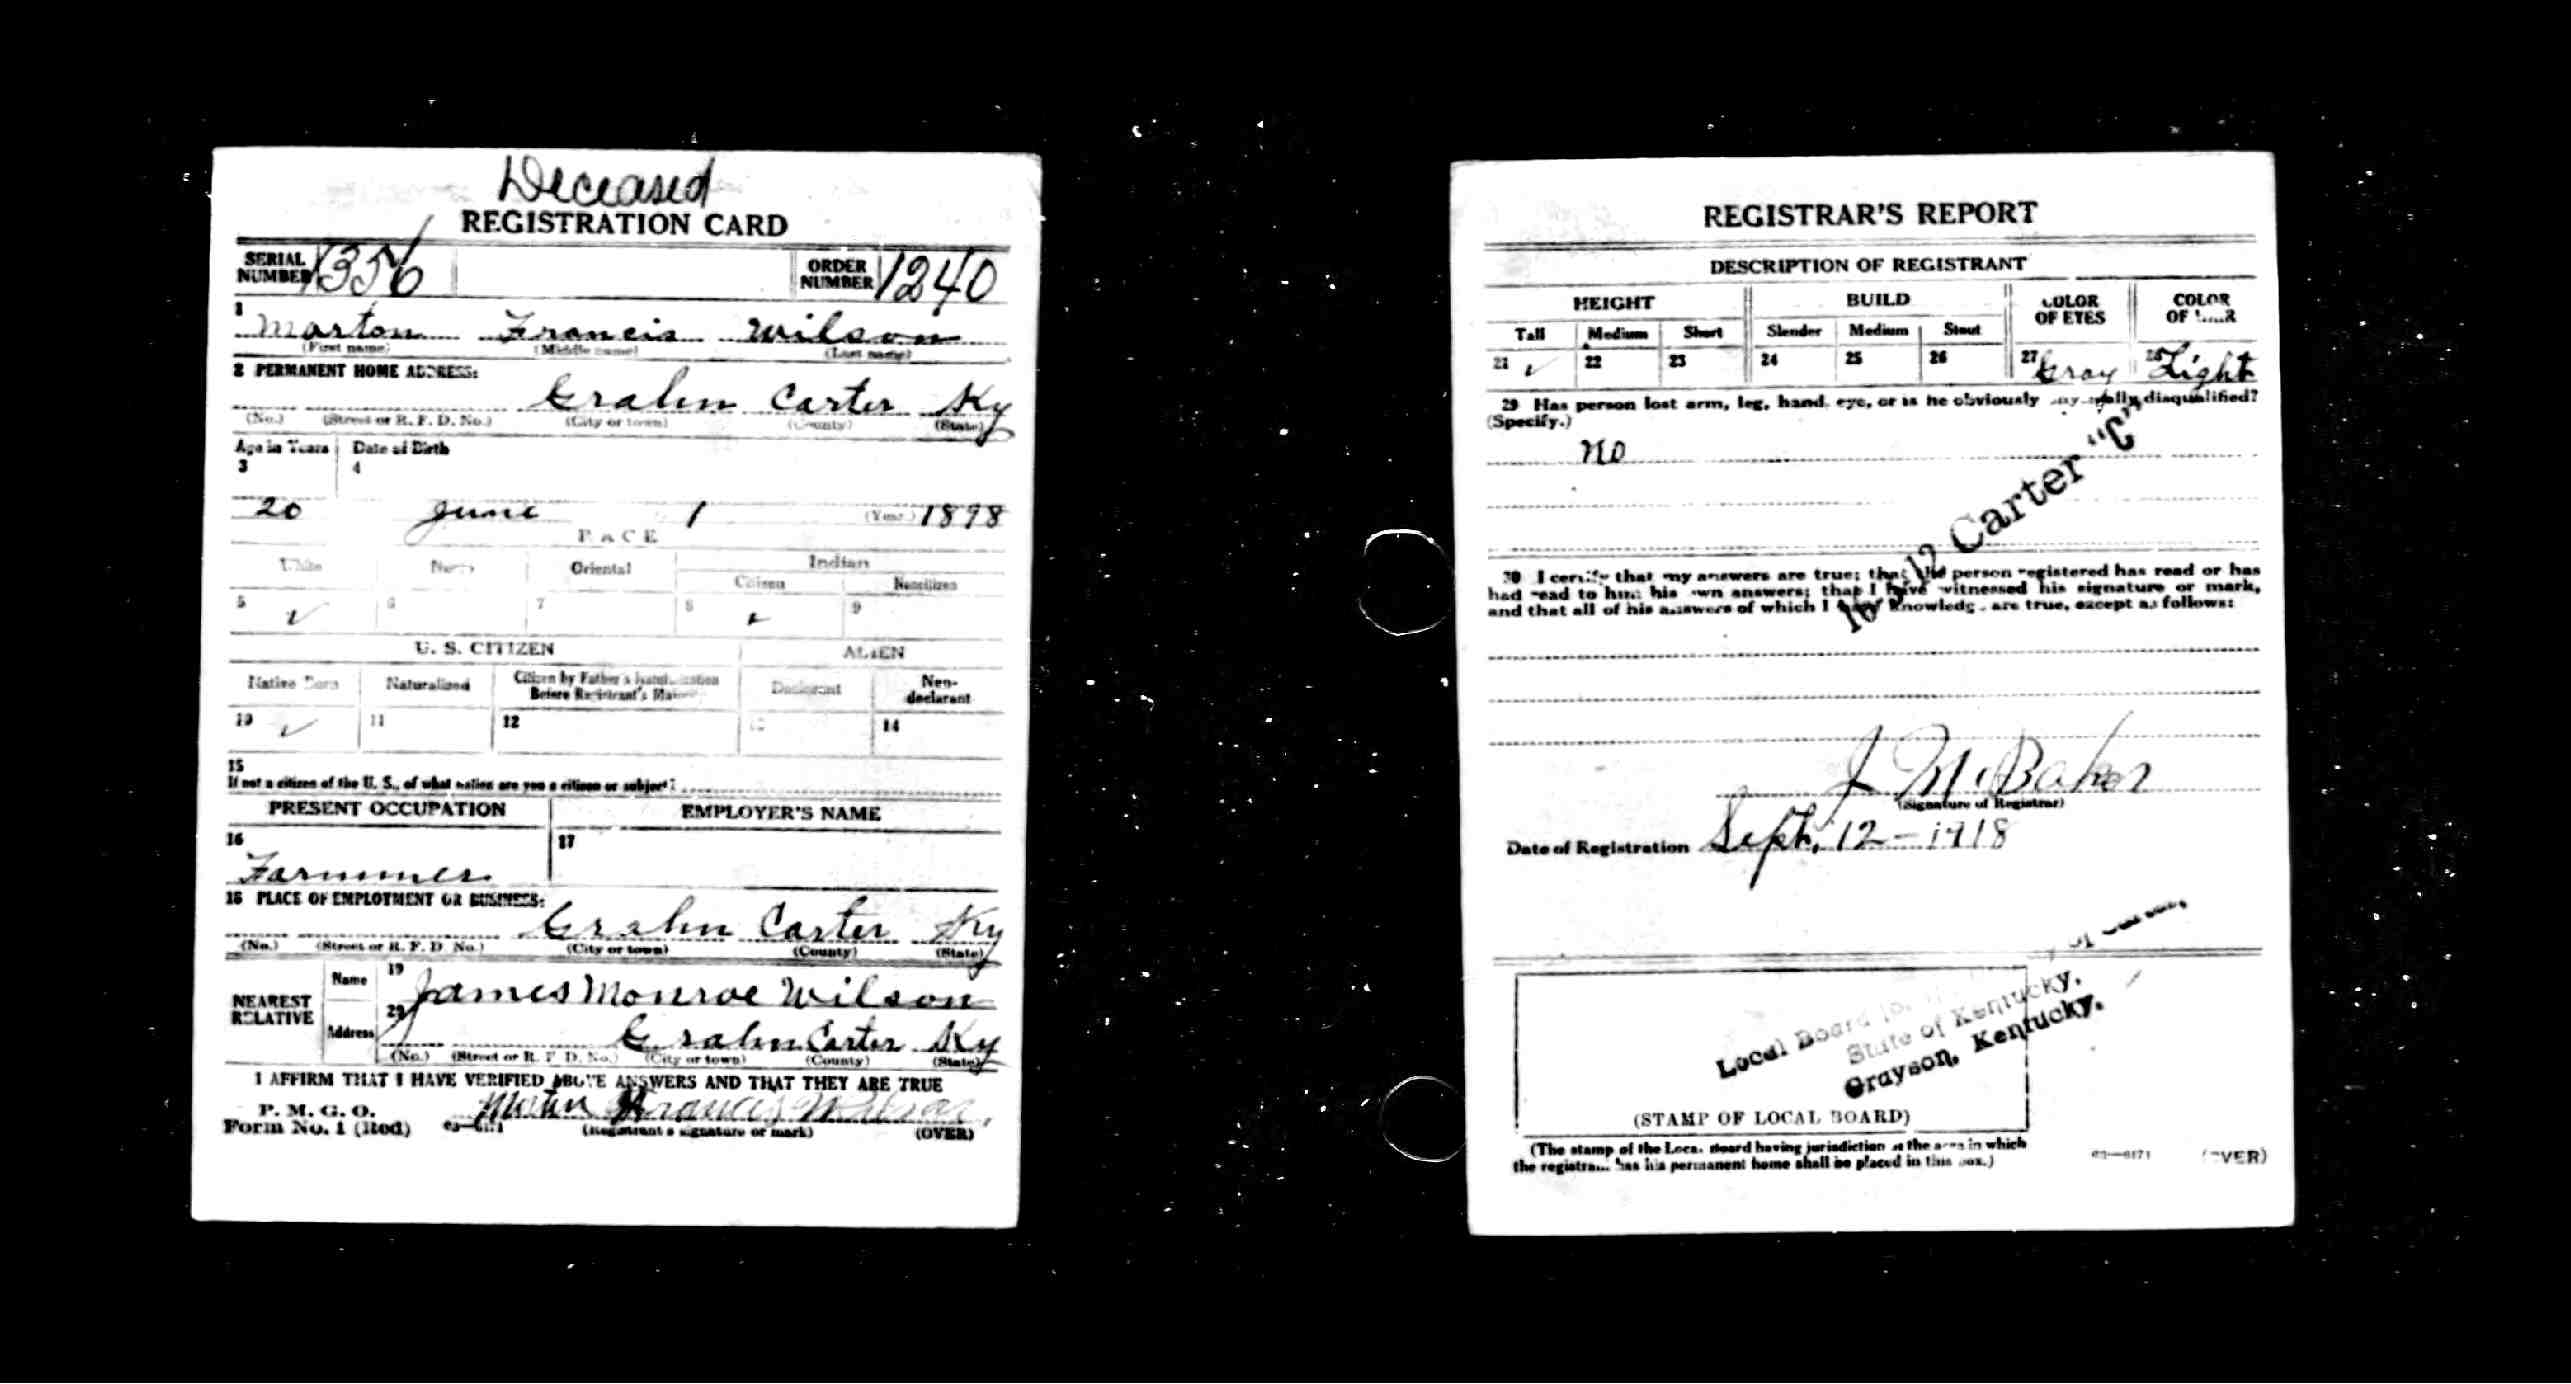 Deceased
REGISTRATION CARD
SERIAL NUMBER 1356 ORDER NUMBER 1240
1 Marton Francis Wilson
(First name) (Middle name) (Last name)
2 PERMANENT HOME ADDRESS:
Grahn Carter Ky
(No.) (Street or R. F. D. No.) (City or town) (County) (State)
Age in Years Date of Birth
3 4
20 June 1 (Year) 1898
RACE
White Negro Oriental Indian
Citizen Noncitizen
5 ✓ 6 7 8 ✓ 9
U. S. CITIZEN ALIEN
Native Born Naturalized Citizen by Father's Naturalization Before Registrant's Majority Declarant Non-declarant
10 ✓ 11 12 13 14
15
If not a citizen of the U. S., of what nation are you a citizen or subject?
PRESENT OCCUPATION EMPLOYER'S NAME
16 17
Farmmer
18 PLACE OF EMPLOYMENT OR BUSINESS:
Grahn Carter Ky
(No.) (Street or R. F. D. No.) (City or town) (County) (State)
NEAREST RELATIVE Name 19 James Monroe Wilson
Address 20 Grahn Carter Ky
(No.) (Street or R. F. D. No.) (City or town) (County) (State)
I AFFIRM THAT I HAVE VERIFIED ABOVE ANSWERS AND THAT THEY ARE TRUE
P. M. G. O.
Form No. 1 (Red) 03—6171 Francis Wilson
(Registrant's signature or mark) (OVER)
REGISTRAR'S REPORT
DESCRIPTION OF REGISTRANT
HEIGHT BUILD COLOR OF EYES COLOR OF HAIR
Tall Medium Short Slender Medium Stout
21 ✓ 22 23 24 25 26 27 Gray 28 Light
29 Has person lost arm, leg, hand, eye, or is he obviously physically disqualified?
(Specify.)
no
16-3-12 Carter "C"
30 I certify that my answers are true; that the person registered has read or has
had read to him his own answers; that I have witnessed his signature or mark,
and that all of his answers of which I have knowledge are true, except as follows:
J M Baker
(Signature of Registrar)
Date of Registration Sept. 12 - 1918
Local Board
State of Kentucky,
Grayson, Kentucky.
(STAMP OF LOCAL BOARD)
(The stamp of the Local Board having jurisdiction of the area in which
the registrant has his permanent home shall be placed in this box.)
03—6171 (OVER)